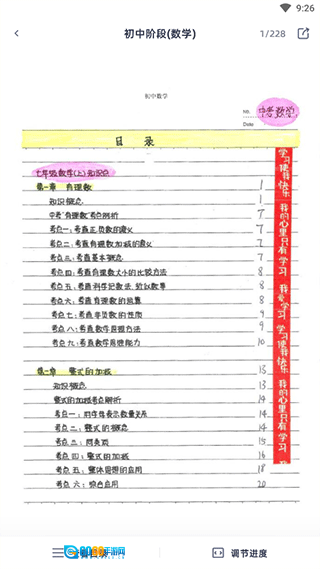 9:26
初中阶段(数学)
1/228
初中数学
No.
中考数学
Date
目 录
七年级数学(上)知识点
第一章 有理数 1
知识概念 1
中考"有理数"考点剖析 7
考点一:考查正负数的意义 7
考点二:考查有理数加减的意义 7
考点三:考查基本概念 7
考点四:考查有理数大小的比较方法 8
考点五:考查科学记数法,验以数率 8
考点六:考查有理数的运算 8
考点七:考查非负数的性质 9
考点八:考查数学思想方法 9
考点九:考查数学思维能力 10
第二章 整式的加减 13
知识概念 13
整式的加减考点解析 14
考点一:用字母表示数量关系 14
考点二:整式的概念 14
考点三:同类项 15
考点四:整式的加减 16
考点五:整体思想的应用 18
考点六:综合应用 20
学习使我快乐 我的心里只有学习 我爱学习 学习使我快乐 我的心里只有学习
查看目录
调节进度